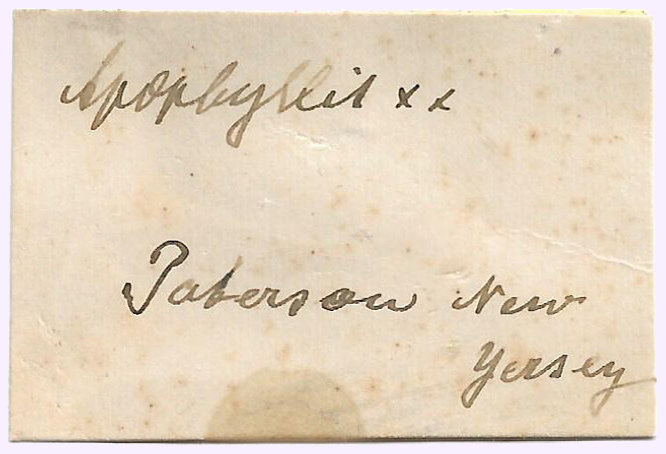 Apophyllit xx
Paterson New
Yersey